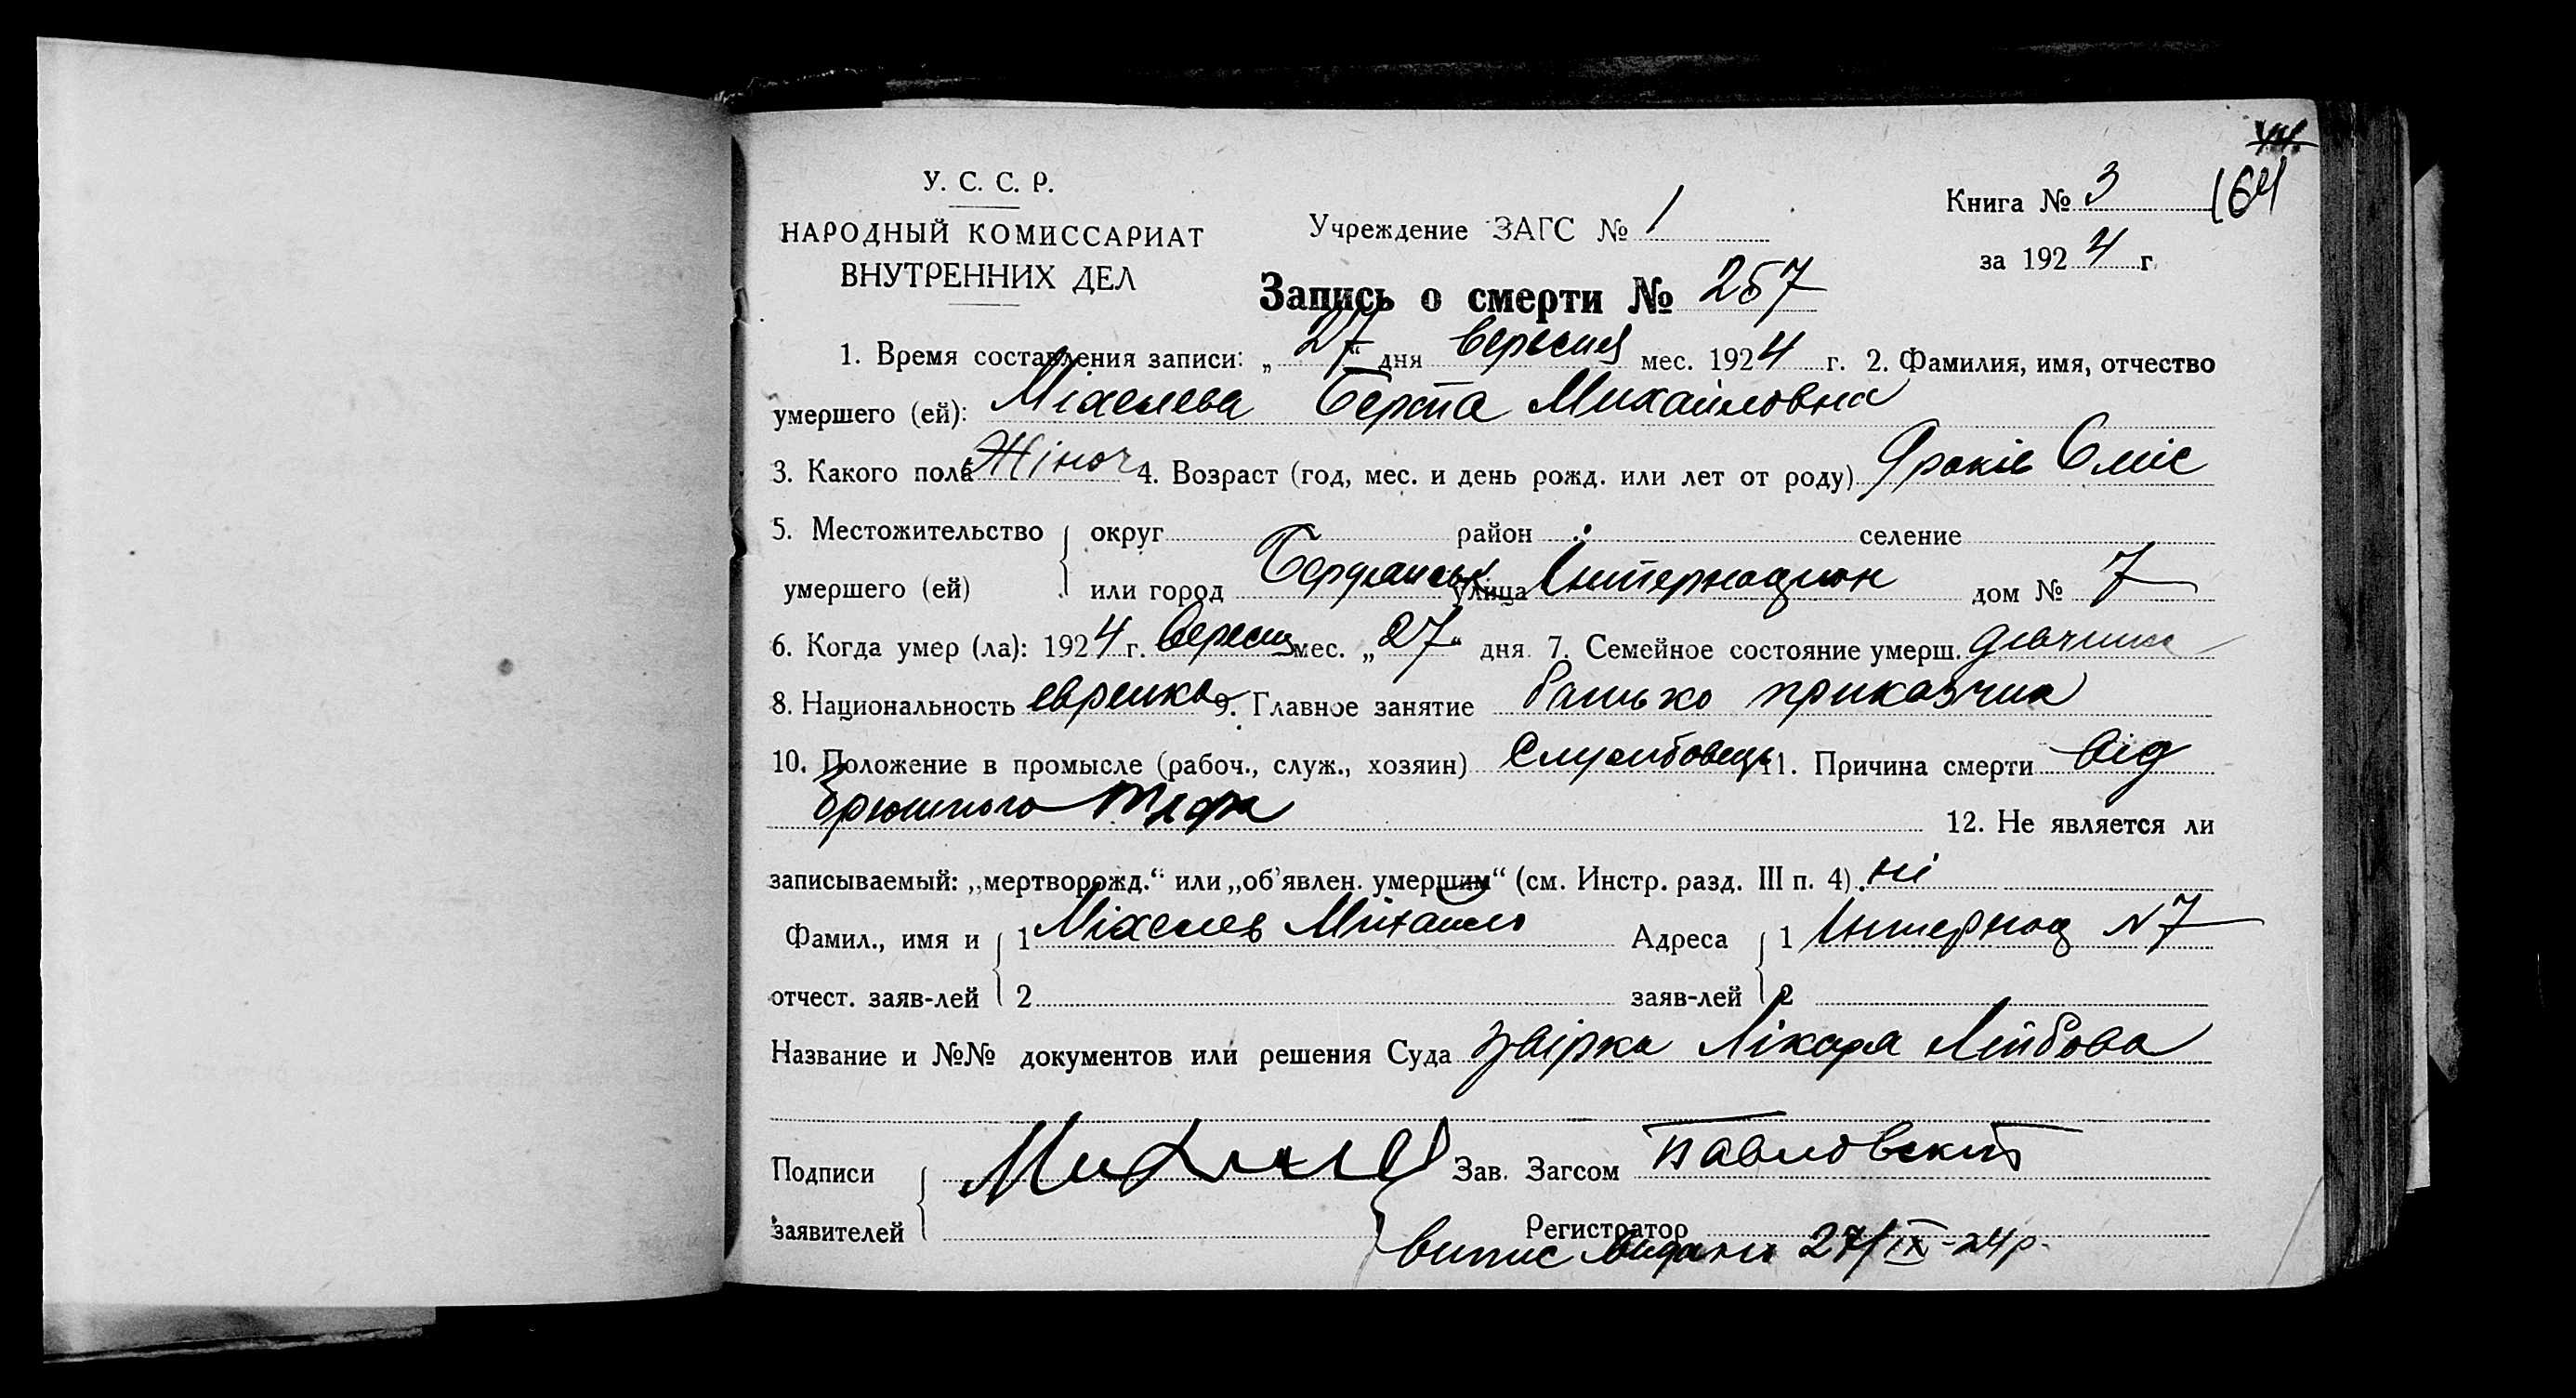 164
У. С. С. Р.
НАРОДНЫЙ КОМИССАРИАТ
ВНУТРЕННИХ ДЕЛ
Учреждение ЗАГС № 1
Книга № 3
за 1924 г.
Запись о смерти № 257
1. Время составления записи: „27“ дня вересня мес. 1924 г. 2. Фамилия, имя, отчество
умершего (ей): Міхелева Берта Михайловна
3. Какого пола Жіноч 4. Возраст (год, мес. и день рожд. или лет от роду) 9 років 6 міс
5. Местожительство округ район селение
умершего (ей) или город Бердянськ улица Интернацион дом № 7
6. Когда умер (ла): 1924 г. вересня мес. „27“ дня 7. Семейное состояние умерш. дівчина
8. Национальность еврейка 9. Главное занятие батько приказчик
10. Положение в промысле (рабоч., служ., хозяин) Службовець 11. Причина смерти від
брюшного тифа 12. Не является ли
записываемый: „мертворожд.“ или „об’явлен. умершим“ (см. Инстр. разд. III п. 4). ні
Фамил., имя и 1 Міхелев Михайло Адреса 1 Интернац N 7
отчест. заяв-лей 2 заяв-лей 2
Название и №№ документов или решения Суда Лікаря Лейбова
Подписи Зав. Загсом Павловский
заявителей Регистратор
Випис видано 27/IX-24 р.